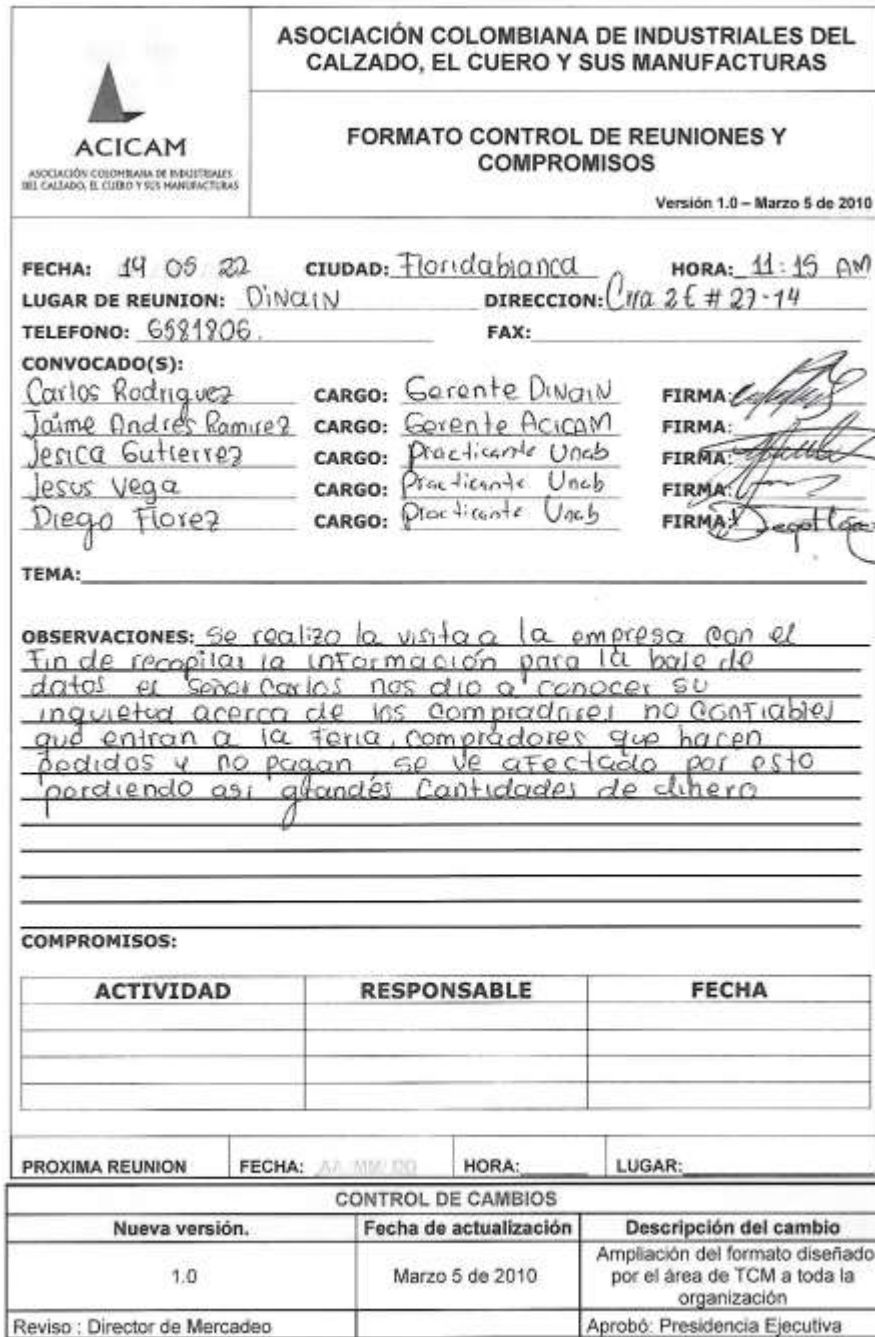 ACICAM
ASOCIACIÓN COLOMBIANA DE INDUSTRIALES
DEL CALZADO, EL CUERO Y SUS MANUFACTURAS
ASOCIACIÓN COLOMBIANA DE INDUSTRIALES DEL
CALZADO, EL CUERO Y SUS MANUFACTURAS
FORMATO CONTROL DE REUNIONES Y
COMPROMISOS
Versión 1.0 – Marzo 5 de 2010
FECHA: 14 05 22 CIUDAD: Floridablanca HORA: 11:15 AM
LUGAR DE REUNION: DiNaiN DIRECCION: Crra 2E # 27-14
TELEFONO: 6581806. FAX:
CONVOCADO(S):
Carlos Rodriguez CARGO: Gerente DiNaiN FIRMA:
Jaime Andres Ramirez CARGO: Gerente ACICAM FIRMA:
Jesica Gutierrez CARGO: Practicante Unab FIRMA:
Jesus Vega CARGO: Practicante Unab FIRMA:
Diego Florez CARGO: Practicante Unab FIRMA:
TEMA:
OBSERVACIONES: Se realizo la visita a la empresa con el
Fin de recopilar la información para la base de
datos el Señor Carlos nos dio a conocer su
inquietud acerca de los compradores no confiables
que entran a la feria, compradores que hacen
pedidos y no pagan se ve afectado por esto
perdiendo asi grandes cantidades de dinero
COMPROMISOS:
ACTIVIDAD RESPONSABLE FECHA
PROXIMA REUNION FECHA: AA/MM/DD HORA: LUGAR:
CONTROL DE CAMBIOS
Nueva versión. Fecha de actualización Descripción del cambio
1.0 Marzo 5 de 2010 Ampliación del formato diseñado
por el área de TCM a toda la
organización
Reviso : Director de Mercadeo Aprobó: Presidencia Ejecutiva